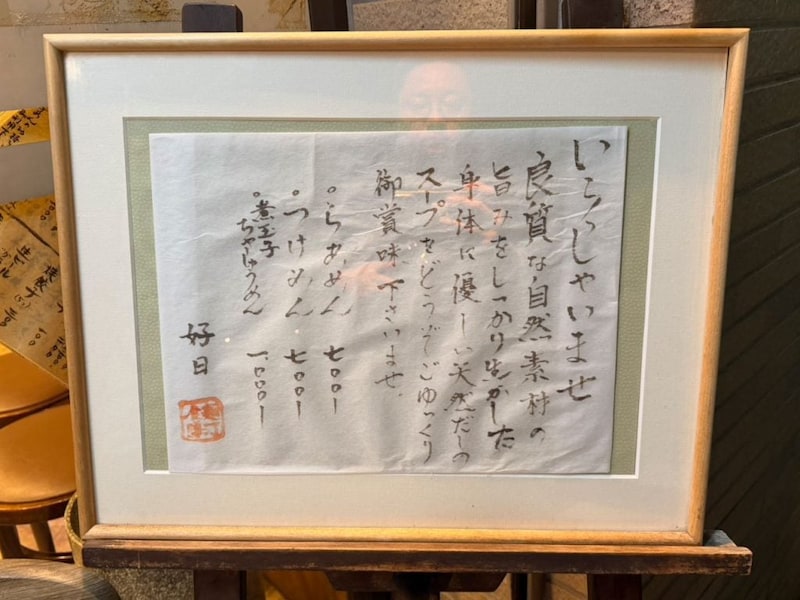 いらっしゃいませ
良質な自然素材の
旨みをしっかり生かした
身体に優しい天然だしの
スープをどうぞごゆっくり
御賞味下さいませ。
。らあめん 七〇〇ー
。つけめん 七〇〇ー
。煮玉子
ちゃーしゅうめん 一、〇〇〇ー
好日